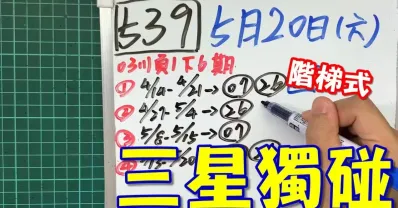 539 5月20日(六)
03順1下6期
① 4/14-4/21→07 26
階梯式
② 4/27-5/4→26
③ 5/8-5/15→07
三星獨碰